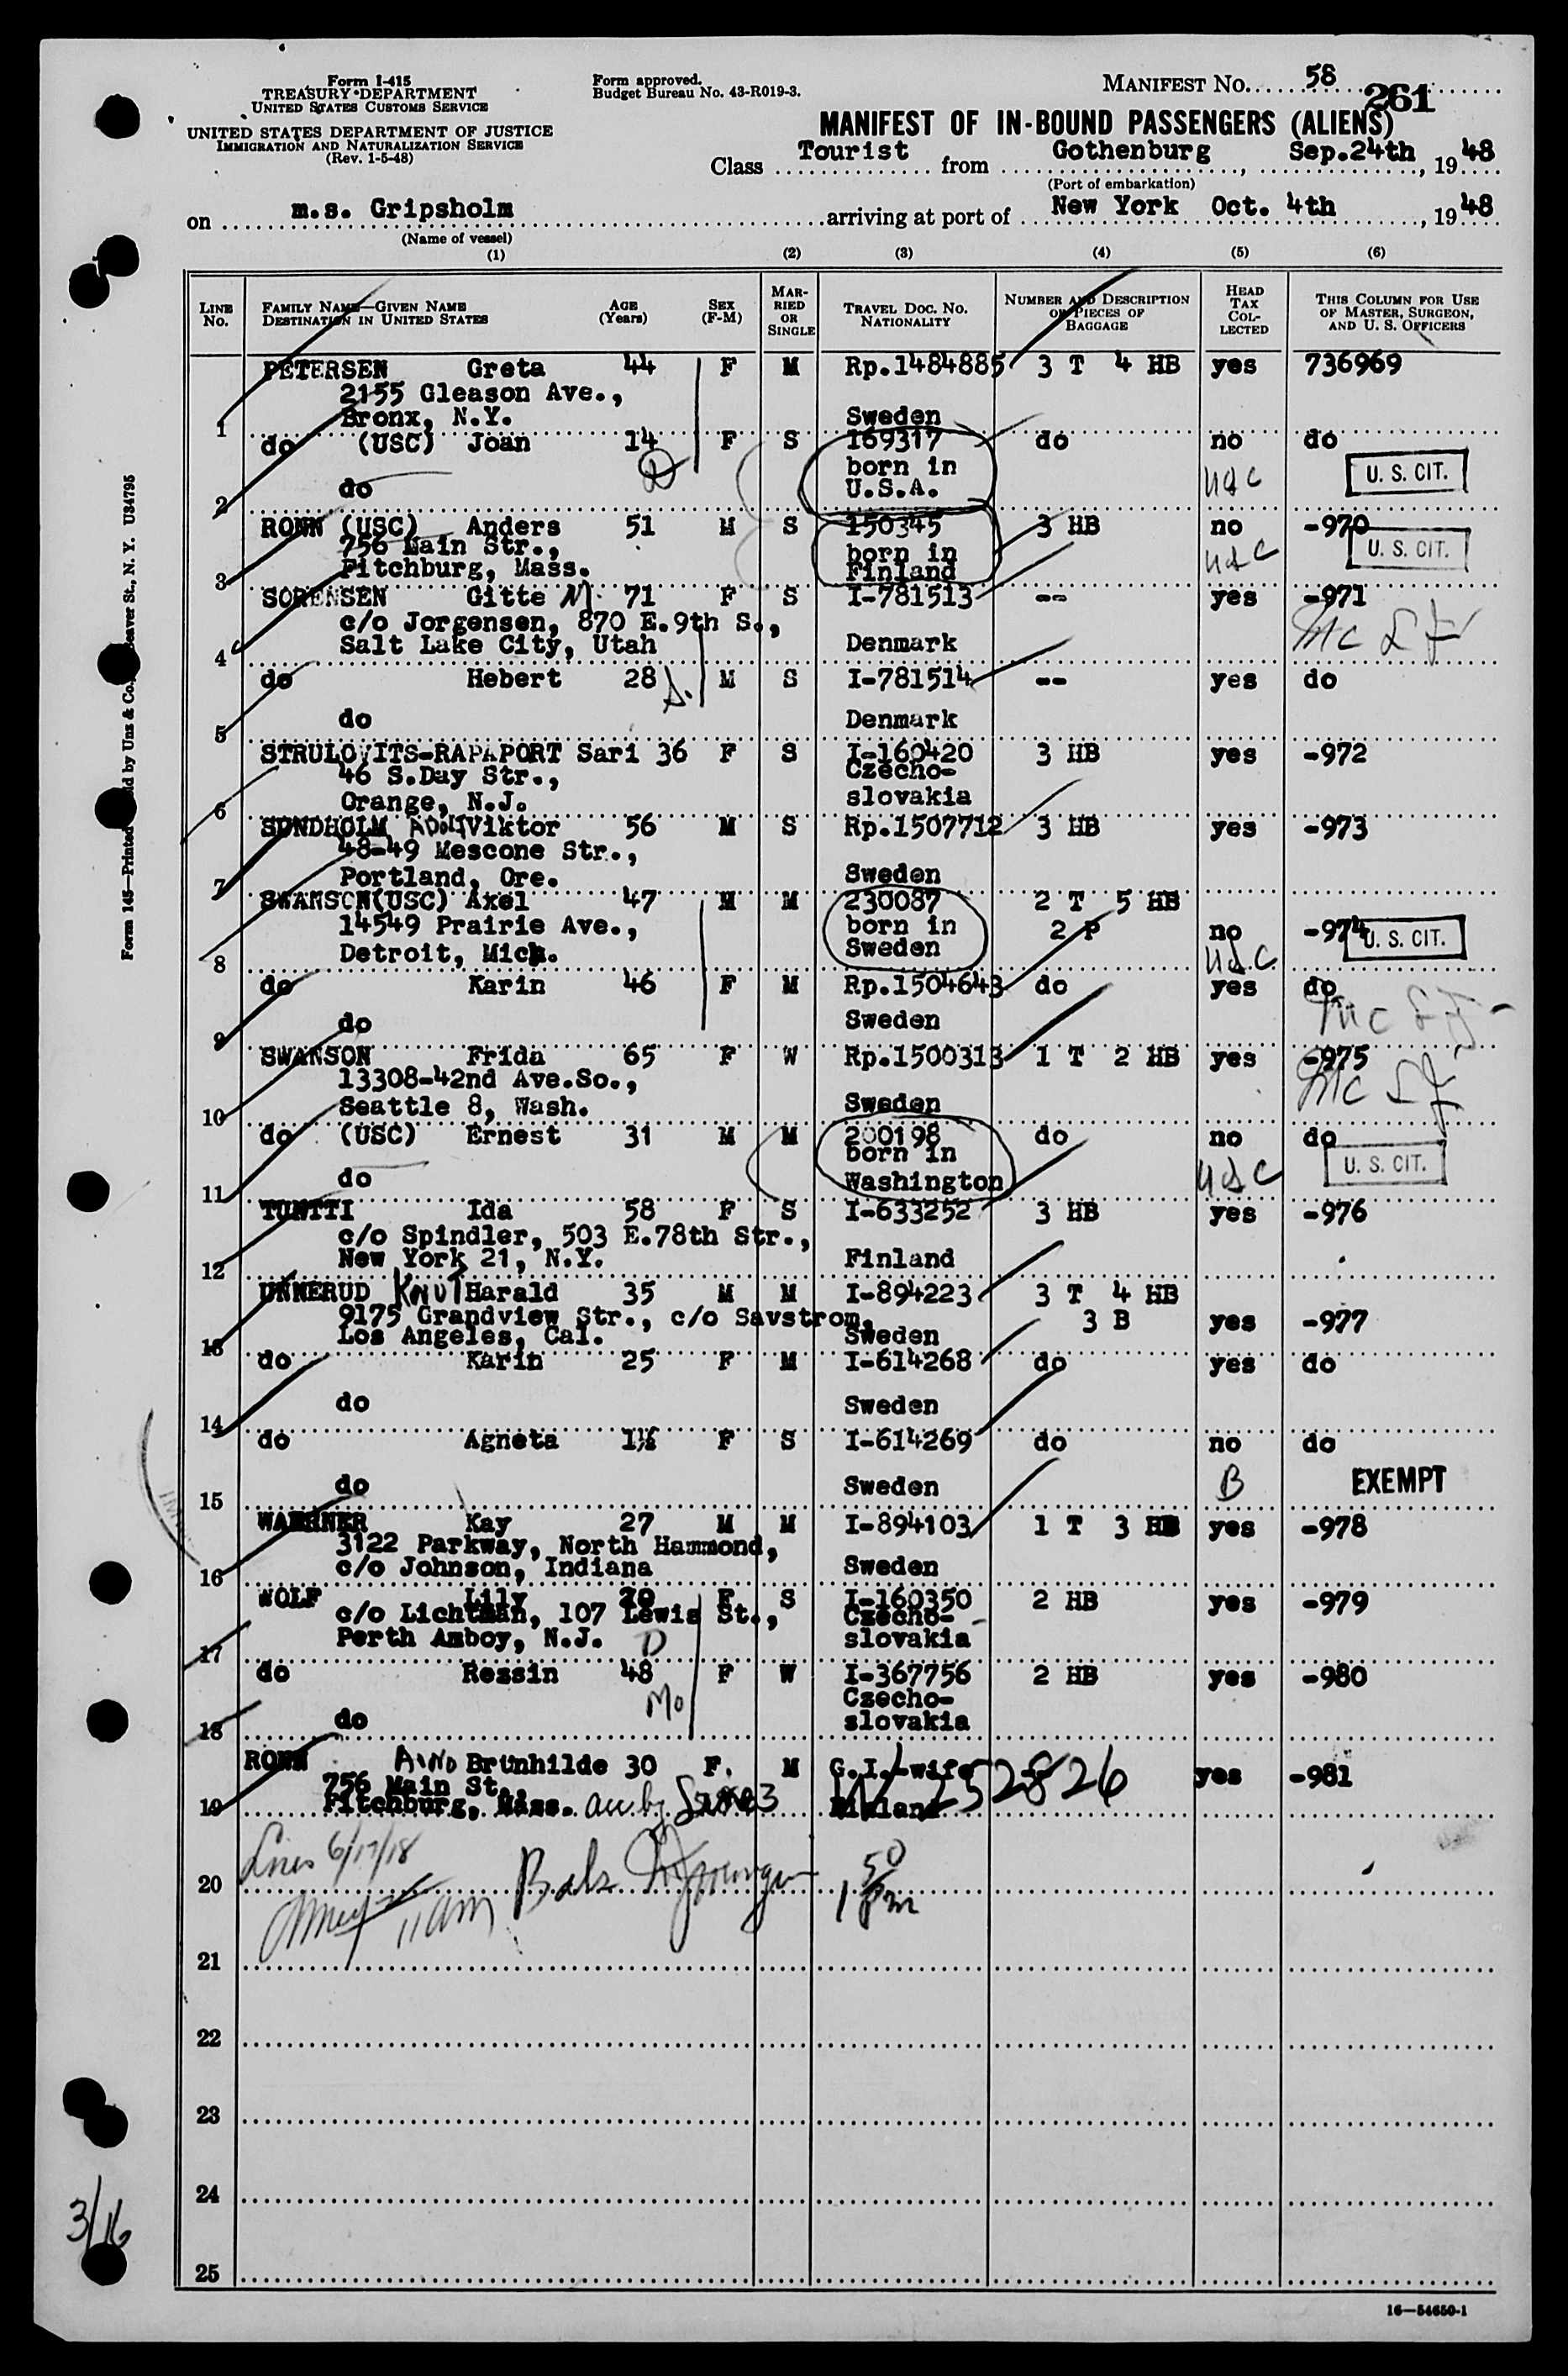 Form I-415
TREASURY DEPARTMENT
UNITED STATES CUSTOMS SERVICE
UNITED STATES DEPARTMENT OF JUSTICE
IMMIGRATION AND NATURALIZATION SERVICE
(Rev. 1-5-48)
Form approved.
Budget Bureau No. 43-R019-3.
MANIFEST No. 58
261
MANIFEST OF IN-BOUND PASSENGERS (ALIENS)
Class Tourist from Gothenburg, Sep.24th, 1948
(Port of embarkation)
on m.s. Gripsholm arriving at port of New York Oct. 4th, 1948
(Name of vessel)
(1) (2) (3) (4) (5) (6)
LINE No. FAMILY NAME—GIVEN NAME DESTINATION IN UNITED STATES AGE (Years) SEX (F-M) MARRIED OR SINGLE TRAVEL DOC. NO. NATIONALITY NUMBER AND DESCRIPTION OF PIECES OF BAGGAGE HEAD TAX COLLECTED THIS COLUMN FOR USE OF MASTER, SURGEON, AND U. S. OFFICERS
PETERSEN Greta 44 F M Rp.1484885 3 T 4 HB yes 736969
2155 Gleason Ave.,
1 Bronx, N.Y. Sweden
do (USC) Joan 14 F S 169317 do no do
D born in USC U. S. CIT.
2 do U.S.A.
RONN (USC) Anders 51 M S 150345 3 HB no -970
756 Main Str., born in USC U. S. CIT.
3 Fitchburg, Mass. Finland
SORENSEN Gitte M. 71 F S I-781513 -- yes -971
c/o Jorgensen, 870 E.9th S.,
4 Salt Lake City, Utah Denmark
do Hebert 28 M S I-781514 -- yes do
S.
5 do Denmark
STRULOVITS-RAPAPORT Sari 36 F S I-160420 3 HB yes -972
46 S.Day Str., Czecho-
6 Orange, N.J. slovakia
SUNDHOLM Adolf Viktor 56 M S Rp.1507712 3 HB yes -973
48-49 Mescone Str.,
7 Portland, Ore. Sweden
SWANSON(USC) Axel 47 M M 230087 2 T 5 HB
14549 Prairie Ave., born in 2 P no -974 U. S. CIT.
8 Detroit, Mich. Sweden U.S.C.
do Karin 46 F M Rp.1504643 do yes do
9 do Sweden
SWANSON Frida 65 F W Rp.1500313 1 T 2 HB yes -975
13308-42nd Ave.So.,
10 Seattle 8, Wash. Sweden
do (USC) Ernest 31 M M 200198 do no do
born in USC U. S. CIT.
11 do Washington
TUNTTI Ida 58 F S I-633252 3 HB yes -976
c/o Spindler, 503 E.78th Str.,
12 New York 21, N.Y. Finland
UNNERUD KNUT Harald 35 M M I-894223 3 T 4 HB
9175 Grandview Str., c/o Savstrom, 3 B yes -977
13 Los Angeles, Cal. Sweden
do Karin 25 F M I-614268 do yes do
14 do Sweden
do Agneta 1½ F S I-614269 do no do
15 do Sweden B EXEMPT
WAERNER Kay 27 M M I-894103 1 T 3 HB yes -978
3122 Parkway, North Hammond,
16 c/o Johnson, Indiana Sweden
WOLF Lily 20 F S I-160350 2 HB yes -979
c/o Lichtman, 107 Lewis St., Czecho-
17 Perth Amboy, N.J. D slovakia
do Rezsin 48 F W I-367756 2 HB yes -980
Mo Czecho-
18 do slovakia
RONN Aino Brunhilde 30 F. M G.I.-wife yes -981
756 Main St., 252826
19 Fitchburg, Mass. Finland
Lines 6/17/18
11 am 1 50 pm
20
21
22
23
24
25
3/16
16—54650-1
Form 145—Printed
Beaver St., N. Y. U34795